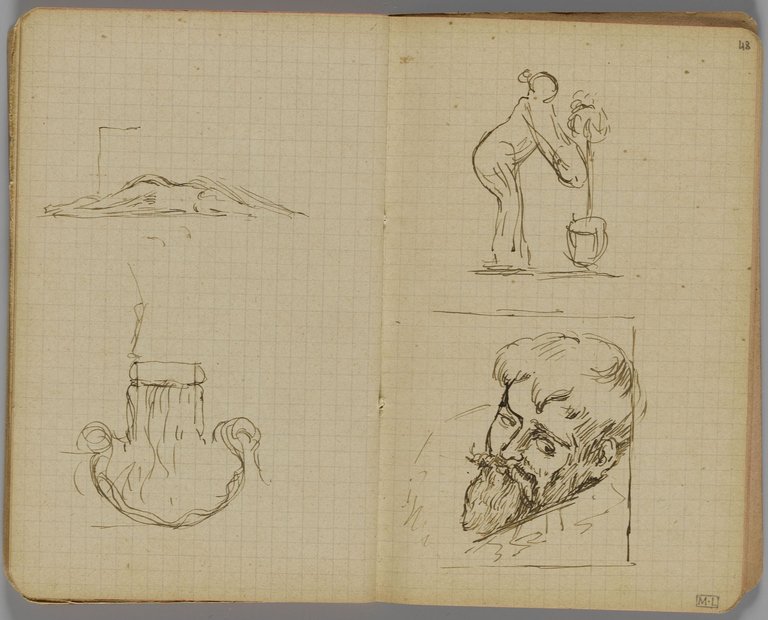 48
M-L